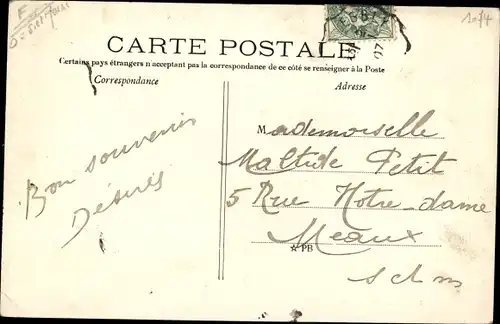 1074
CARTE POSTALE
Certains pays étrangers n'acceptant pas la correspondance de ce côté se renseigner à la Poste
Correspondance
Adresse
Bon souvenir
Désirés
Mademoiselle
Maltide Petit
5 Rue Notre-dame
Meaux
☆ PB
S et m